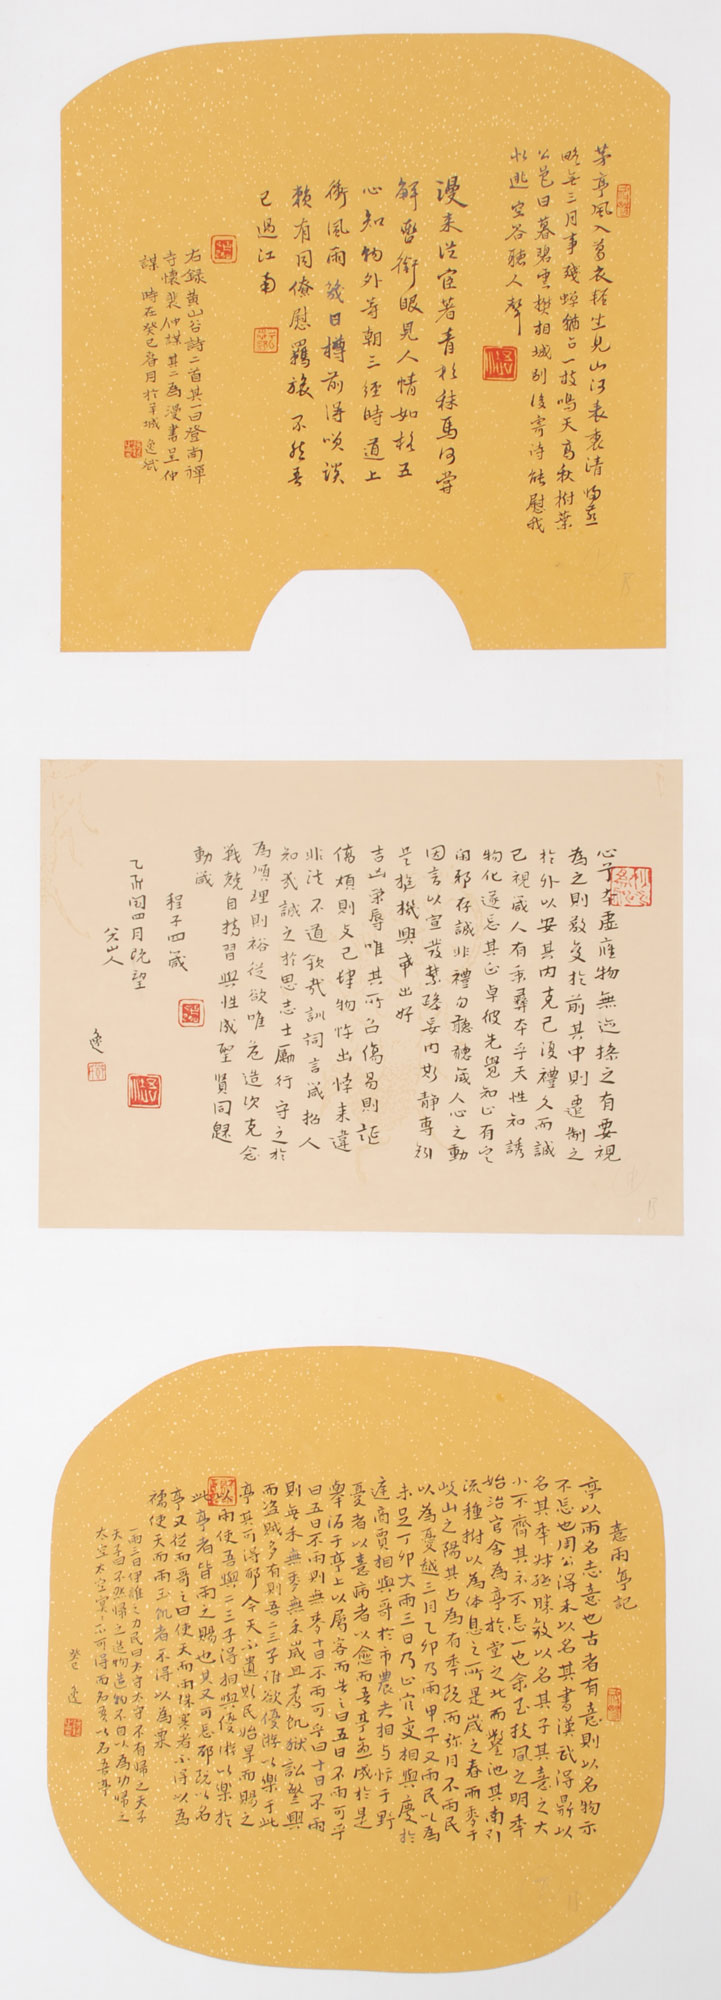 茅亭風入葛衣輕坐見山河表裏清歸燕
略無三月事殘蟬猶占一枝鳴天高秋樹葉
公邑日暮碧雲樊相城別後寄詩能慰我
似逃空谷聽人聲
漫來從宦著青衫秣馬何嘗
解轡銜眼見人情如格五
心知物外等朝三經時道上
衝風雨幾日樽前得笑談
賴有同僚慰羈旅不然吾
已過江南
右錄黃山谷詩二首其一曰登南禪
寺懷裴仲謀其二為漫書呈仲
謀 時在癸巳春月於羊城逸斌
心兮本虛應物無迹操之有要視
為之則蔽交於前其中則遷制之
於外以安其內克己復禮久而誠
已視箴人有秉彝本乎天性知誘
物化遂忘其正卓彼先覺知止有定
閑邪存誠非禮勿聽聽箴人心之動
因言以宣發禁躁妄內斯靜專矧
是樞機興戎出好
吉凶榮辱唯其所召傷易則誕
傷煩則支己肆物忤出悖來違
非法不道欽哉訓詞言箴哲人
知幾誠之於思志士勵行守之於
為順理則裕從欲唯危造次克念
戰兢自持習與性成聖賢同歸
動箴
程子四箴
閏四月既望
山人
逸
喜雨亭記
亭以雨名志喜也古者有喜則以名物示
不忘也周公得禾以名其書漢武得鼎以
名其年叔孫勝敵以名其子其喜之大
小不齊其示不忘一也余至扶風之明年
始治官舍為亭於堂之北而鑿池其南引
流種樹以為休息之所是歲之春雨麥于
岐山之陽其占為有年既而彌月不雨民
以為憂越三月乙卯乃雨甲子又雨民以為
未足丁卯大雨三日乃止官吏相與慶於
庭商賈相與歌於市農夫相與忭于野
憂者以喜病者以愈而吾亭適成於是
舉酒于亭上以屬客而告之曰五日不雨可乎
曰五日不雨則無麥十日不雨可乎曰十日不雨
則無禾無麥無禾歲且荐飢獄訟繁興
而盜賊多有則吾二三子雖欲優游以樂于此
亭其可得耶今天不遺斯民始旱而賜之
以雨使吾與二三子得相與優游以樂於
此亭者皆雨之賜也其又可忘邪既以名
亭又從而歌之曰使天而雨珠寒者不得以為
襦使天而雨玉飢者不得以為粟
一雨三日伊誰之力民曰太守太守不有歸之天子
天子曰不然歸之造物造物不自以為功歸之
太空太空冥冥不可得而名吾以名吾亭
癸巳 逸